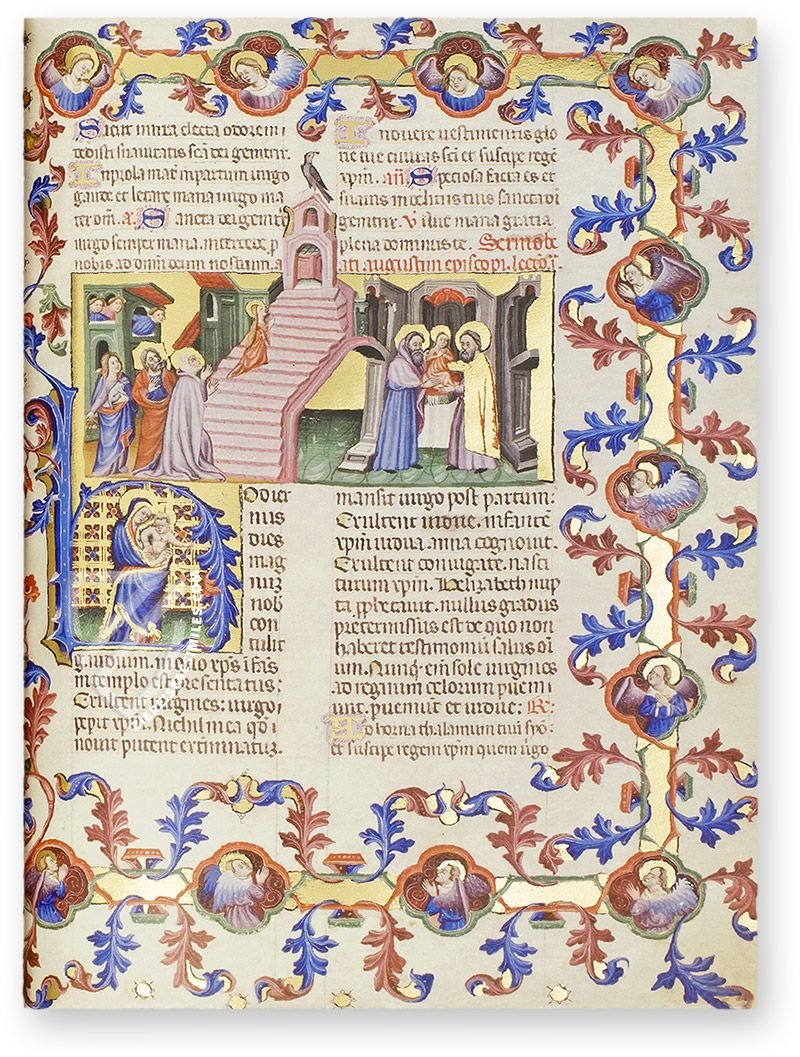 Sicut mirra electa odorem
dedisti suavitatis sca dei genitrix.
virgo
gaude et letare maria virgo ma
ter dni. a. Sancta dei genitrix
virgo semper maria. intercede p
nobis ad dnm deum nostrum.
Induere vestimentis glo
rie tue civitas sci et suscipe rege
xpm. añ. Speciosa facta es et
suavis in deliciis tuis sancta dei
genitrix. V. ave maria gratia
plena dominus te. Sermo be
ati augustini episcopi. lectio i.
Hodier
nus
dies
mag
nuz
nob
con
tulit
gaudium. in quo xps ifãs
in templo est presentatus:
Exultent virgines: virgo
pepit xpm. Nichil in ea qd i
novit putent exterminatuz.
mansit virgo post partum:
Exultent vidue. infante
xpm vidua. anna cognovit.
Exultent coniugate. nasci
turum xpm. Helizabeth nup
ta pphetavit. nullus gradus
pretermissus est de quo non
haberet testimonium salus oi
um. Nunq. enim sole virgines
ad regnum celorum pveni
unt. pveniut et vidue: R.
Adorna thalamum tuu syo:
et suscipe regem xpm quem vgo